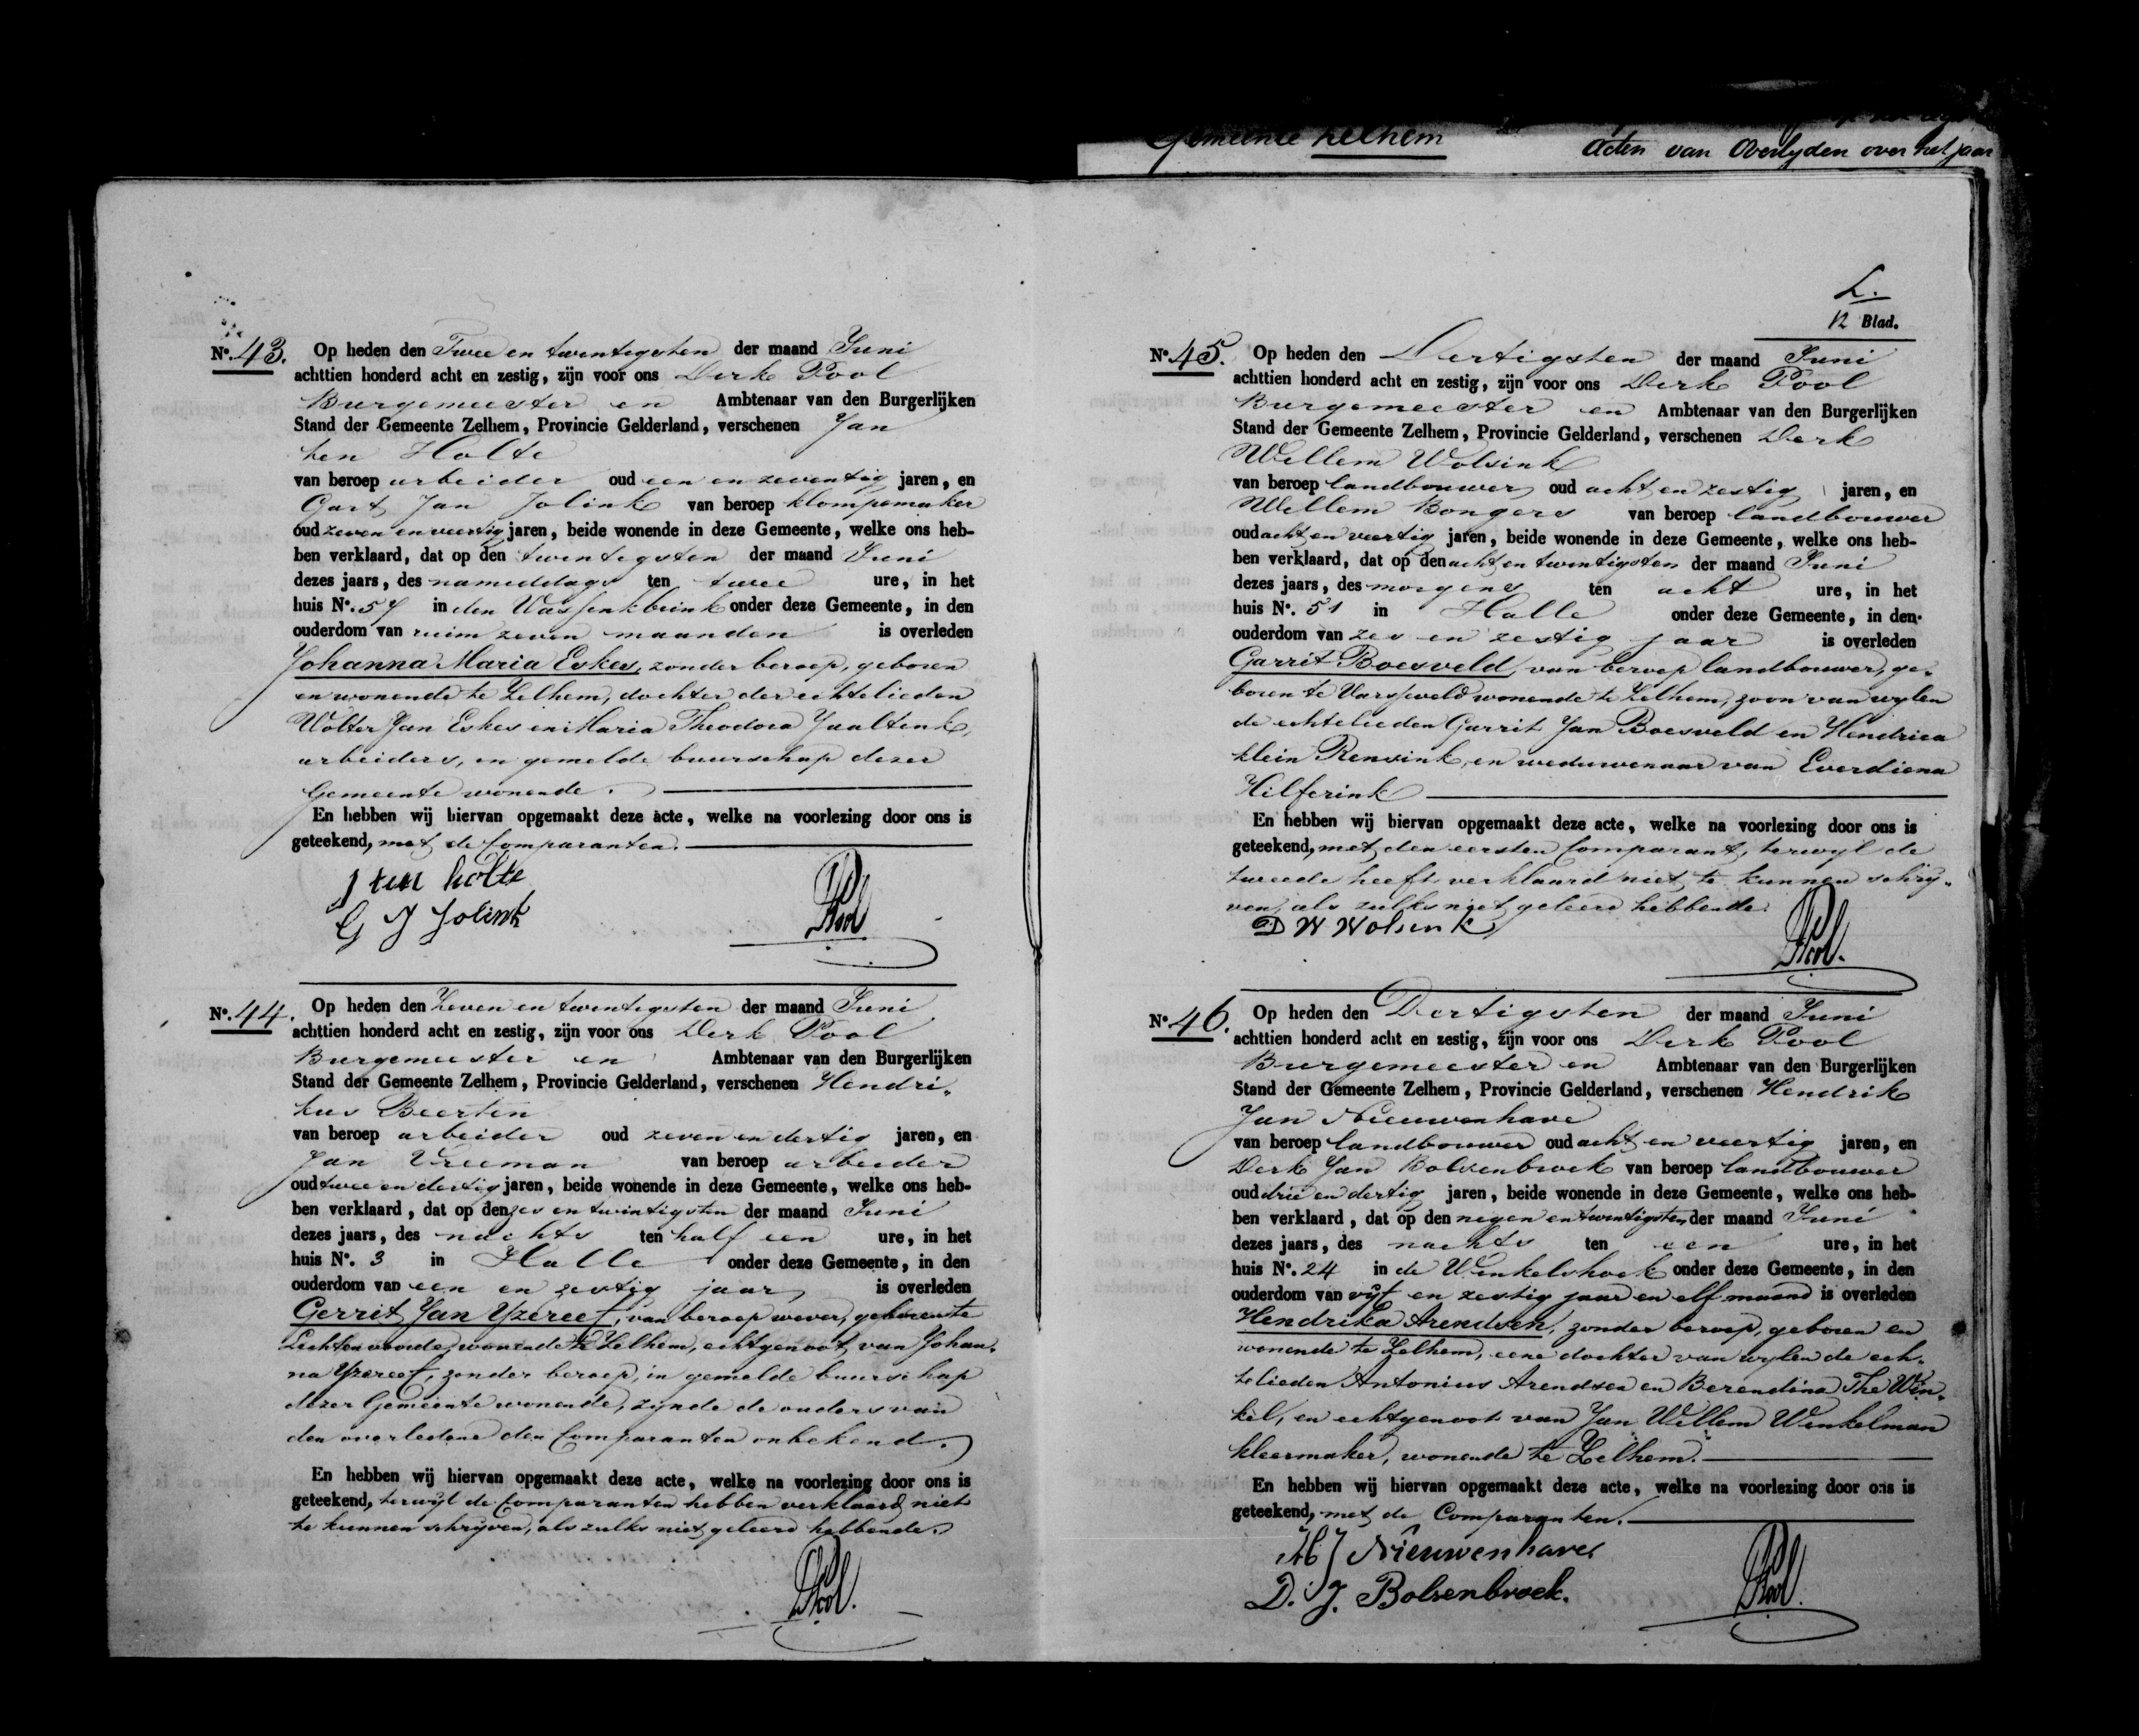 Gemeente Zelhem
Acten van Overlyden over het jaar
No. 43. Op heden den Twee en twentigsten der maand Juni
achttien honderd acht en zestig, zijn voor ons Derk Pool
Burgemeester en Ambtenaar van den Burgerlijken
Stand der Gemeente Zelhem, Provincie Gelderland, verschenen Jan
ten Holte
van beroep arbeider oud een en zeventig jaren, en
Gart Jan Jolink van beroep klompemaker
oud zeven en veertig jaren, beide wonende in deze Gemeente, welke ons heb-
ben verklaard, dat op den twentigsten der maand Juni
dezes jaars, des namiddags ten twee ure, in het
huis No. 57 in den Wassenkbrink onder deze Gemeente, in den
ouderdom van ruim zeven maanden is overleden
Johanna Maria Eskes, zonder beroep, geboren
en wonende te Zelhem, dochter der echtelieden
Wolter Jan Eskes en Maria Theodora Jaaltink,
arbeiders, in gemelde buurschap dezer
Gemeente wonende.
En hebben wij hiervan opgemaakt deze acte, welke na voorlezing door ons is
geteekend, met de Comparanten.
J ten holte
G J Jolink
DPool
No. 44. Op heden den Zeven en twentigsten der maand Juni
achttien honderd acht en zestig, zijn voor ons Derk Pool
Burgemeester en Ambtenaar van den Burgerlijken
Stand der Gemeente Zelhem, Provincie Gelderland, verschenen Hendri„
kus Beerten
van beroep arbeider oud zeven en dertig jaren, en
Jan Vreeman van beroep arbeider
oud twee en dertig jaren, beide wonende in deze Gemeente, welke ons heb-
ben verklaard, dat op den zes en twintigsten der maand Juni
dezes jaars, des nachts ten half een ure, in het
huis No. 3 in Halle onder deze Gemeente, in den
ouderdom van een en zestig jaar is overleden
Gerrit Jan Yzereef, van beroep wever, geboren te
Lichtenvoorde, wonende te Zelhem, echtgenoot van Johan„
na Yzereef, zonder beroep, in gemelde buurschap
dezer Gemeente wonende, zynde de ouders van
den overledene den Comparanten onbekend.
En hebben wij hiervan opgemaakt deze acte, welke na voorlezing door ons is
geteekend, terwyl de Comparanten hebben verklaard niet
te kunnen schryven, als zulks niet geleerd hebbende.
DPool.
12 Blad.
No. 45. Op heden den Dertigsten der maand Juni
achttien honderd acht en zestig, zijn voor ons Derk Pool
Burgemeester en Ambtenaar van den Burgerlijken
Stand der Gemeente Zelhem, Provincie Gelderland, verschenen Derk
Willem Wolsink
van beroep landbouwer oud acht en zestig jaren, en
Willem Bongers van beroep landbouwer
oud acht en veertig jaren, beide wonende in deze Gemeente, welke ons heb-
ben verklaard, dat op den acht en twintigsten der maand Juni
dezes jaars, des morgens ten acht ure, in het
huis No. 51 in Halle onder deze Gemeente, in den
ouderdom van zes en zestig jaar is overleden
Garrit Boesveld, van beroep landbouwer, ge„
boren te Varsseveld wonende te Zelhem, zoon van wylen
de echtelieden Garrit Jan Boesveld en Hendrica
klein Rensink, en weduwenaar van Everdiena
Hilferink
En hebben wij hiervan opgemaakt deze acte, welke na voorlezing door ons is
geteekend, met den eersten Comparant, terwyl de
tweede heeft verklaard niet te kunnen schry„
ven, als zulks niet geleerd hebbende.
D W Wolsink
DPool.
No. 46. Op heden den Dertigsten der maand Juni
achttien honderd acht en zestig, zijn voor ons Derk Pool
Burgemeester en Ambtenaar van den Burgerlijken
Stand der Gemeente Zelhem, Provincie Gelderland, verschenen Hendrik
Jan Nieuwenhave
van beroep landbouwer oud acht en veertig jaren, en
Derk Jan Bolsenbroek van beroep landbouwer
oud drie en dertig jaren, beide wonende in deze Gemeente, welke ons heb-
ben verklaard, dat op den negen en twentigsten der maand Juni
dezes jaars, des nachts ten een ure, in het
huis No. 24 in de Winkelshoek onder deze Gemeente, in den
ouderdom van vijf en zestig jaar en elf maand is overleden
Hendrika Arendsen, zonder beroep, geboren en
wonende te Zelhem, eene dochter van wylen de ech„
telieden Antonius Arendsen en Berendina The Win„
kel, en echtgenoot van Jan Willem Winkelman
kleermaker, wonende te Zelhem.
En hebben wij hiervan opgemaakt deze acte, welke na voorlezing door ons is
geteekend, met de Comparanten.
H J Nieuwenhave
D. J. Bolsenbroek.
DPool.